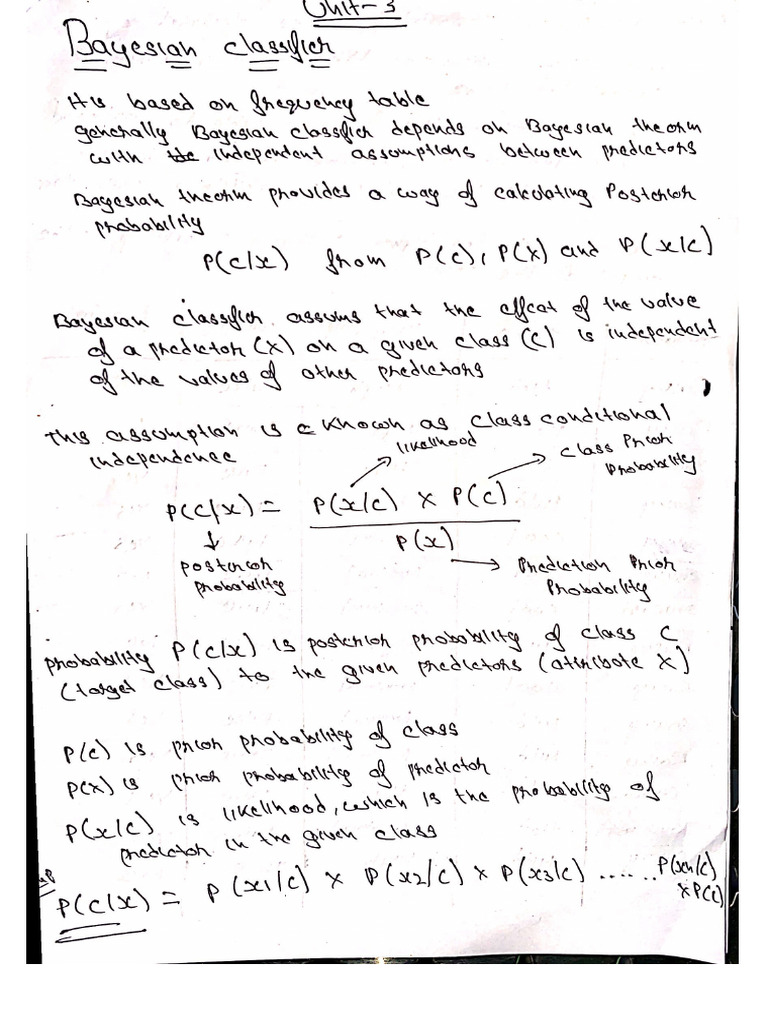 Unit-3
Bayesian classifier
It is based on frequency table
generally Bayesian classfier depends on Bayesian theorm
with independent assumptions between predictors
Bayesian theorm provides a way of calculating Posterior
probability
P(c/x) from P(c), P(x) and P(x/c)
Bayesian classifier assums that the effect of the value
of a predictor (x) on a given class (c) is independent
of the values of other predictors
This assumption is known as class conditional
independence
likelihood
class Prior
Probability
P(c/x) = P(x/c) × P(c)
P(x)
posterior
probability
Prediction Prior
Probability
probability P(c/x) is posterior probability of class C
(target class) to the given predictors (attribute x)
P(c) is prior probability of class
P(x) is prior probability of predictor
P(x/c) is likelihood, which is the probability of
predictor in the given class
P(c/x) = P(x1/c) × P(x2/c) × P(x3/c) ...... P(xn/c)
× P(c)